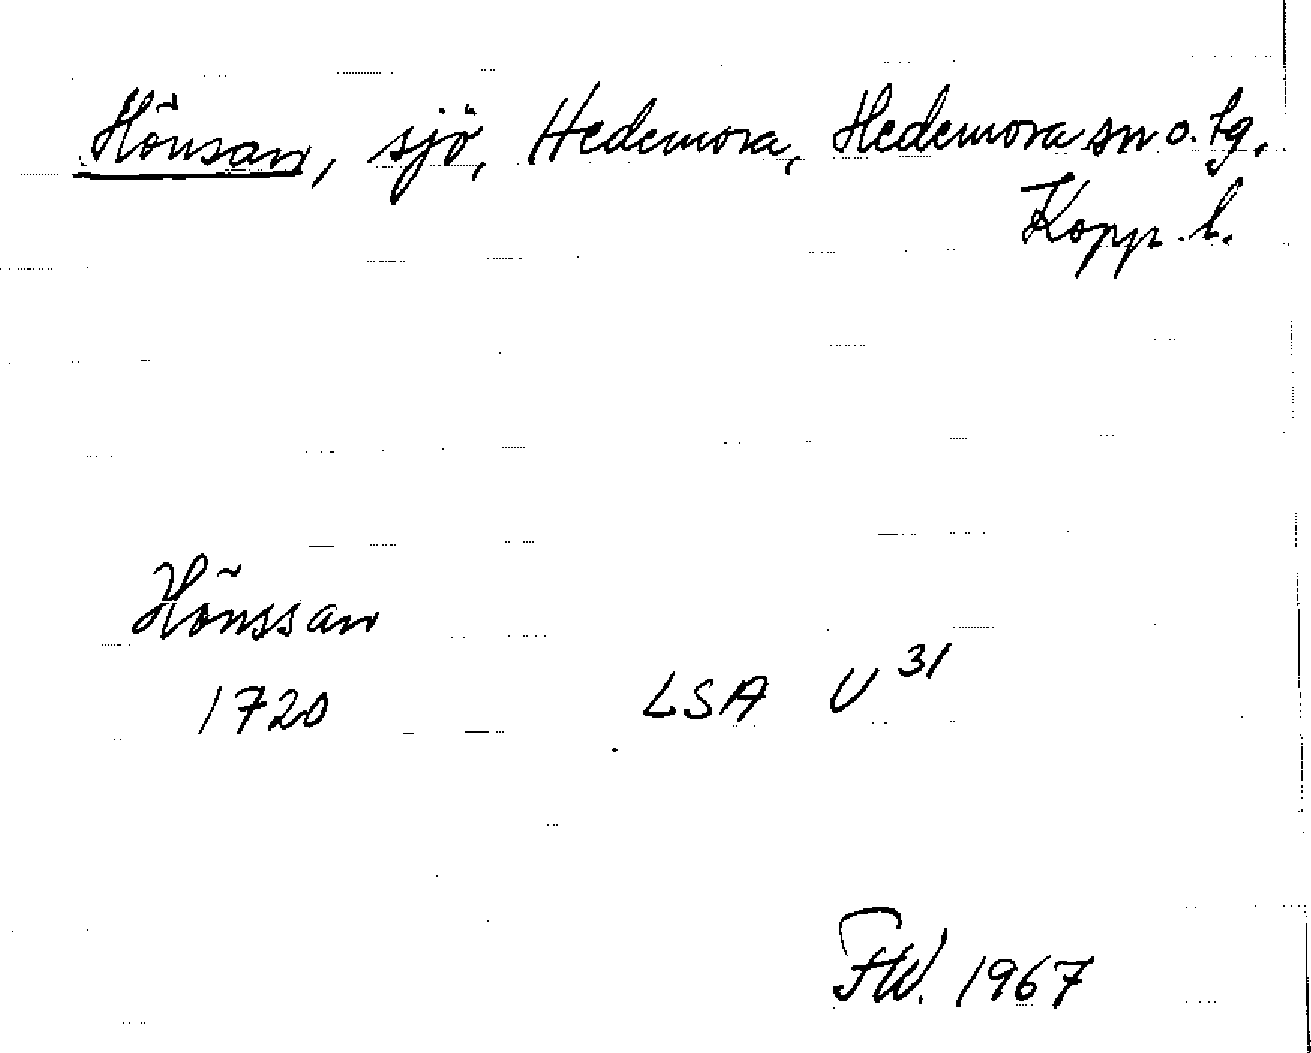 Hönsan, sjö, Hedemora, Hedemora sn o. tg.
Kopp. l.
Hönssan
1720 LSA U 31
FW. 1967